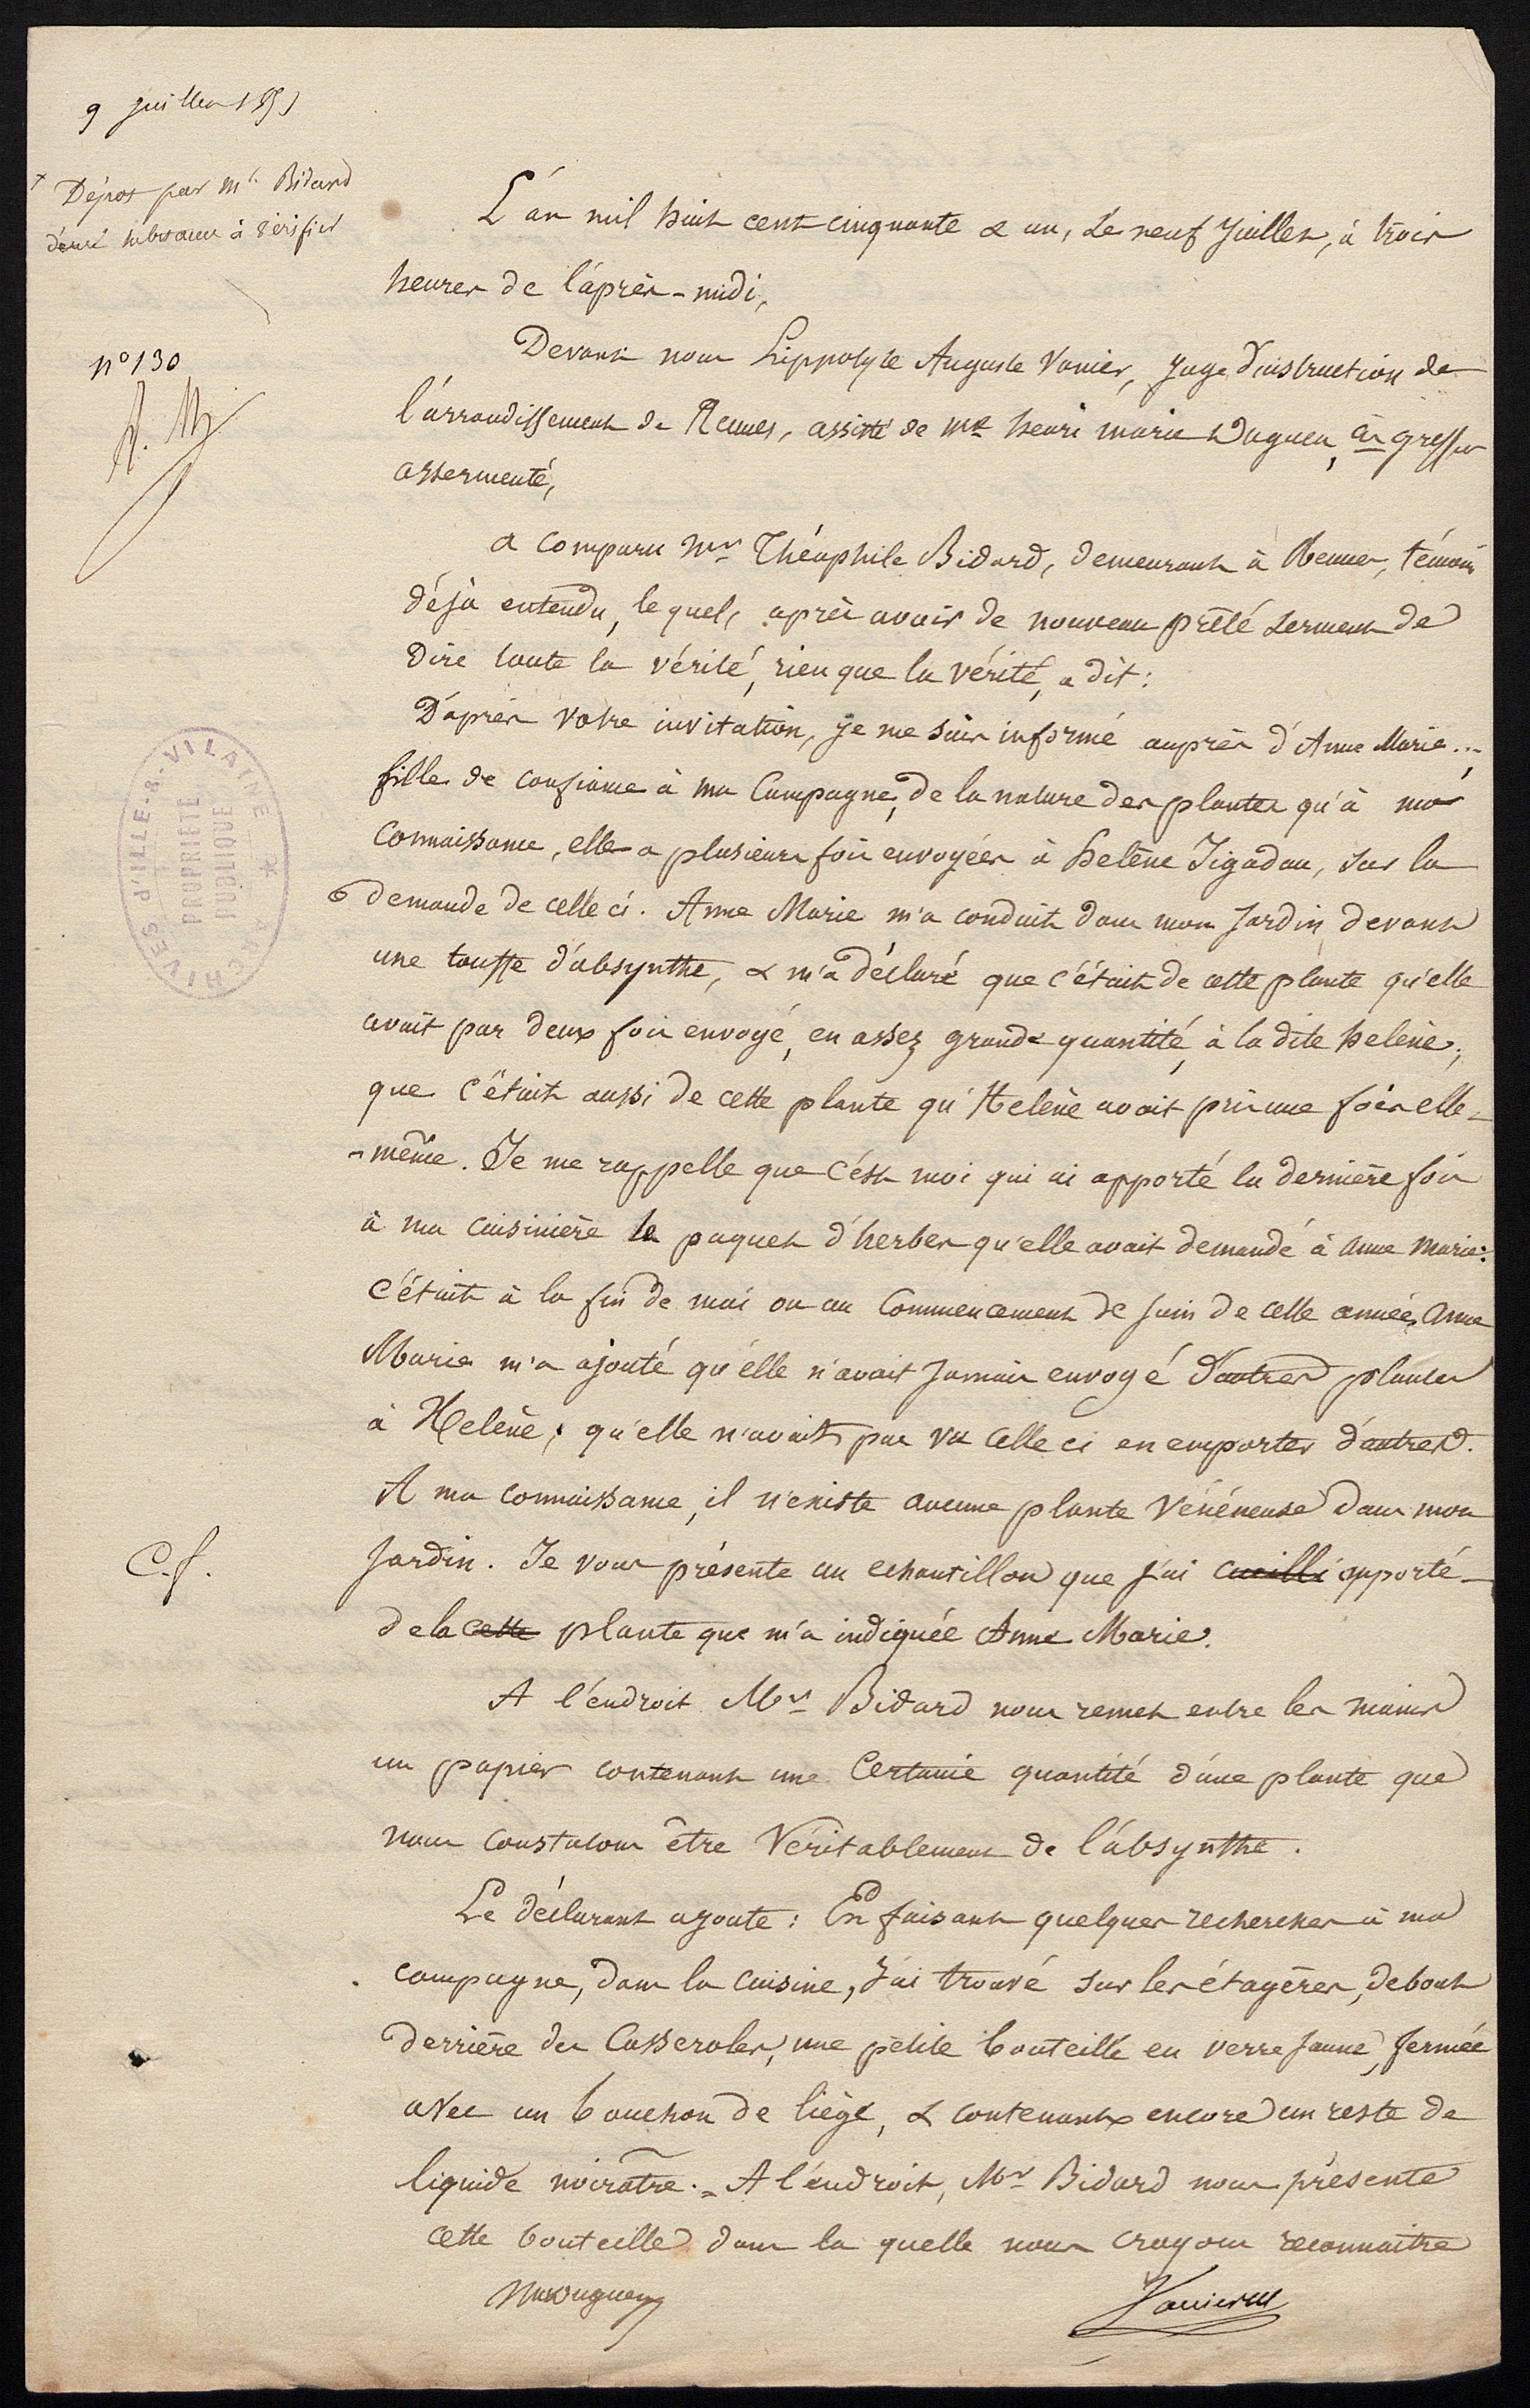 9 juillet 1851
Dépôt par Mr Bidard
d'une substance à vérifier
n° 130
L'an mil huit cent cinquante & un, Le neuf Juillet, à trois
heures de l'après-midi,
Devant nous hippolyte Auguste Vanier, Juge d'instruction de
l'arrondissement de Rennes, assisté de Me henri marie Daguen, greffier
assermenté,
a comparu Mr Théophile Bidard, demeurant à Rennes, témoin
déjà entendu, lequel, après avoir de nouveau prêté serment de
dire toute la vérité, rien que la vérité, a dit :
D'après votre invitation, je me suis informé auprès d'Anne Marie ...,
fille de confiance à ma Campagne, de la nature des plantes qu'à ma
connaissance, elle a plusieurs fois envoyées à helène Jégadau, sur la
demande de celle ci. Anne Marie m'a conduit dans mon Jardin devant
une touffe d'absynthe, & m'a déclaré que c'était de cette plante qu'elle
avait par deux fois envoyé, en assez grande quantité, à la dite helène,
que c'était aussi de cette plante qu'Helène avait pris une fois elle-
-même. Je me rappelle que c'est moi qui ai apporté la dernière fois
à ma cuisinière le paquet d'herbes qu'elle avait demandé à anne marie :
c'était à la fin de mai ou au Commencement de Juin de cette année, anne
Marie m'a ajouté qu'elle n'avait Jamais envoyé d'autres plantes
à Helène, qu'elle n'avait pas vu celle ci en emporter d'autres.
A ma connaissance, il n'existe aucune plante vénéneuse dans mon
Jardin. Je vous présente un echantillon que j'ai cueilli apporté
C.f.
de la cette plante que m'a indiquée Anne Marie.
A l'endroit Mr Bidard nous remet entre les mains
un papier contenant une Certaine quantité d'une plante que
nous constatons être Véritablement de l'absynthe.
Le déclarant ajoute : En faisant quelques recherches à ma
campagne, dans la cuisine, J'ai trouvé sur les étagères, debout
derrière des Casseroles, une petite bouteille en verre Jaune, fermée
avec un bouchon de liège, & contenant encore un reste de
liquide noirâtre. = A l'endroit, Mr Bidard nous présente
cette bouteille dans la quelle nous croyons reconnaitre
Vanier
ARCHIVES d'ILLE-&-VILAINE
PROPRIÉTÉ
PUBLIQUE